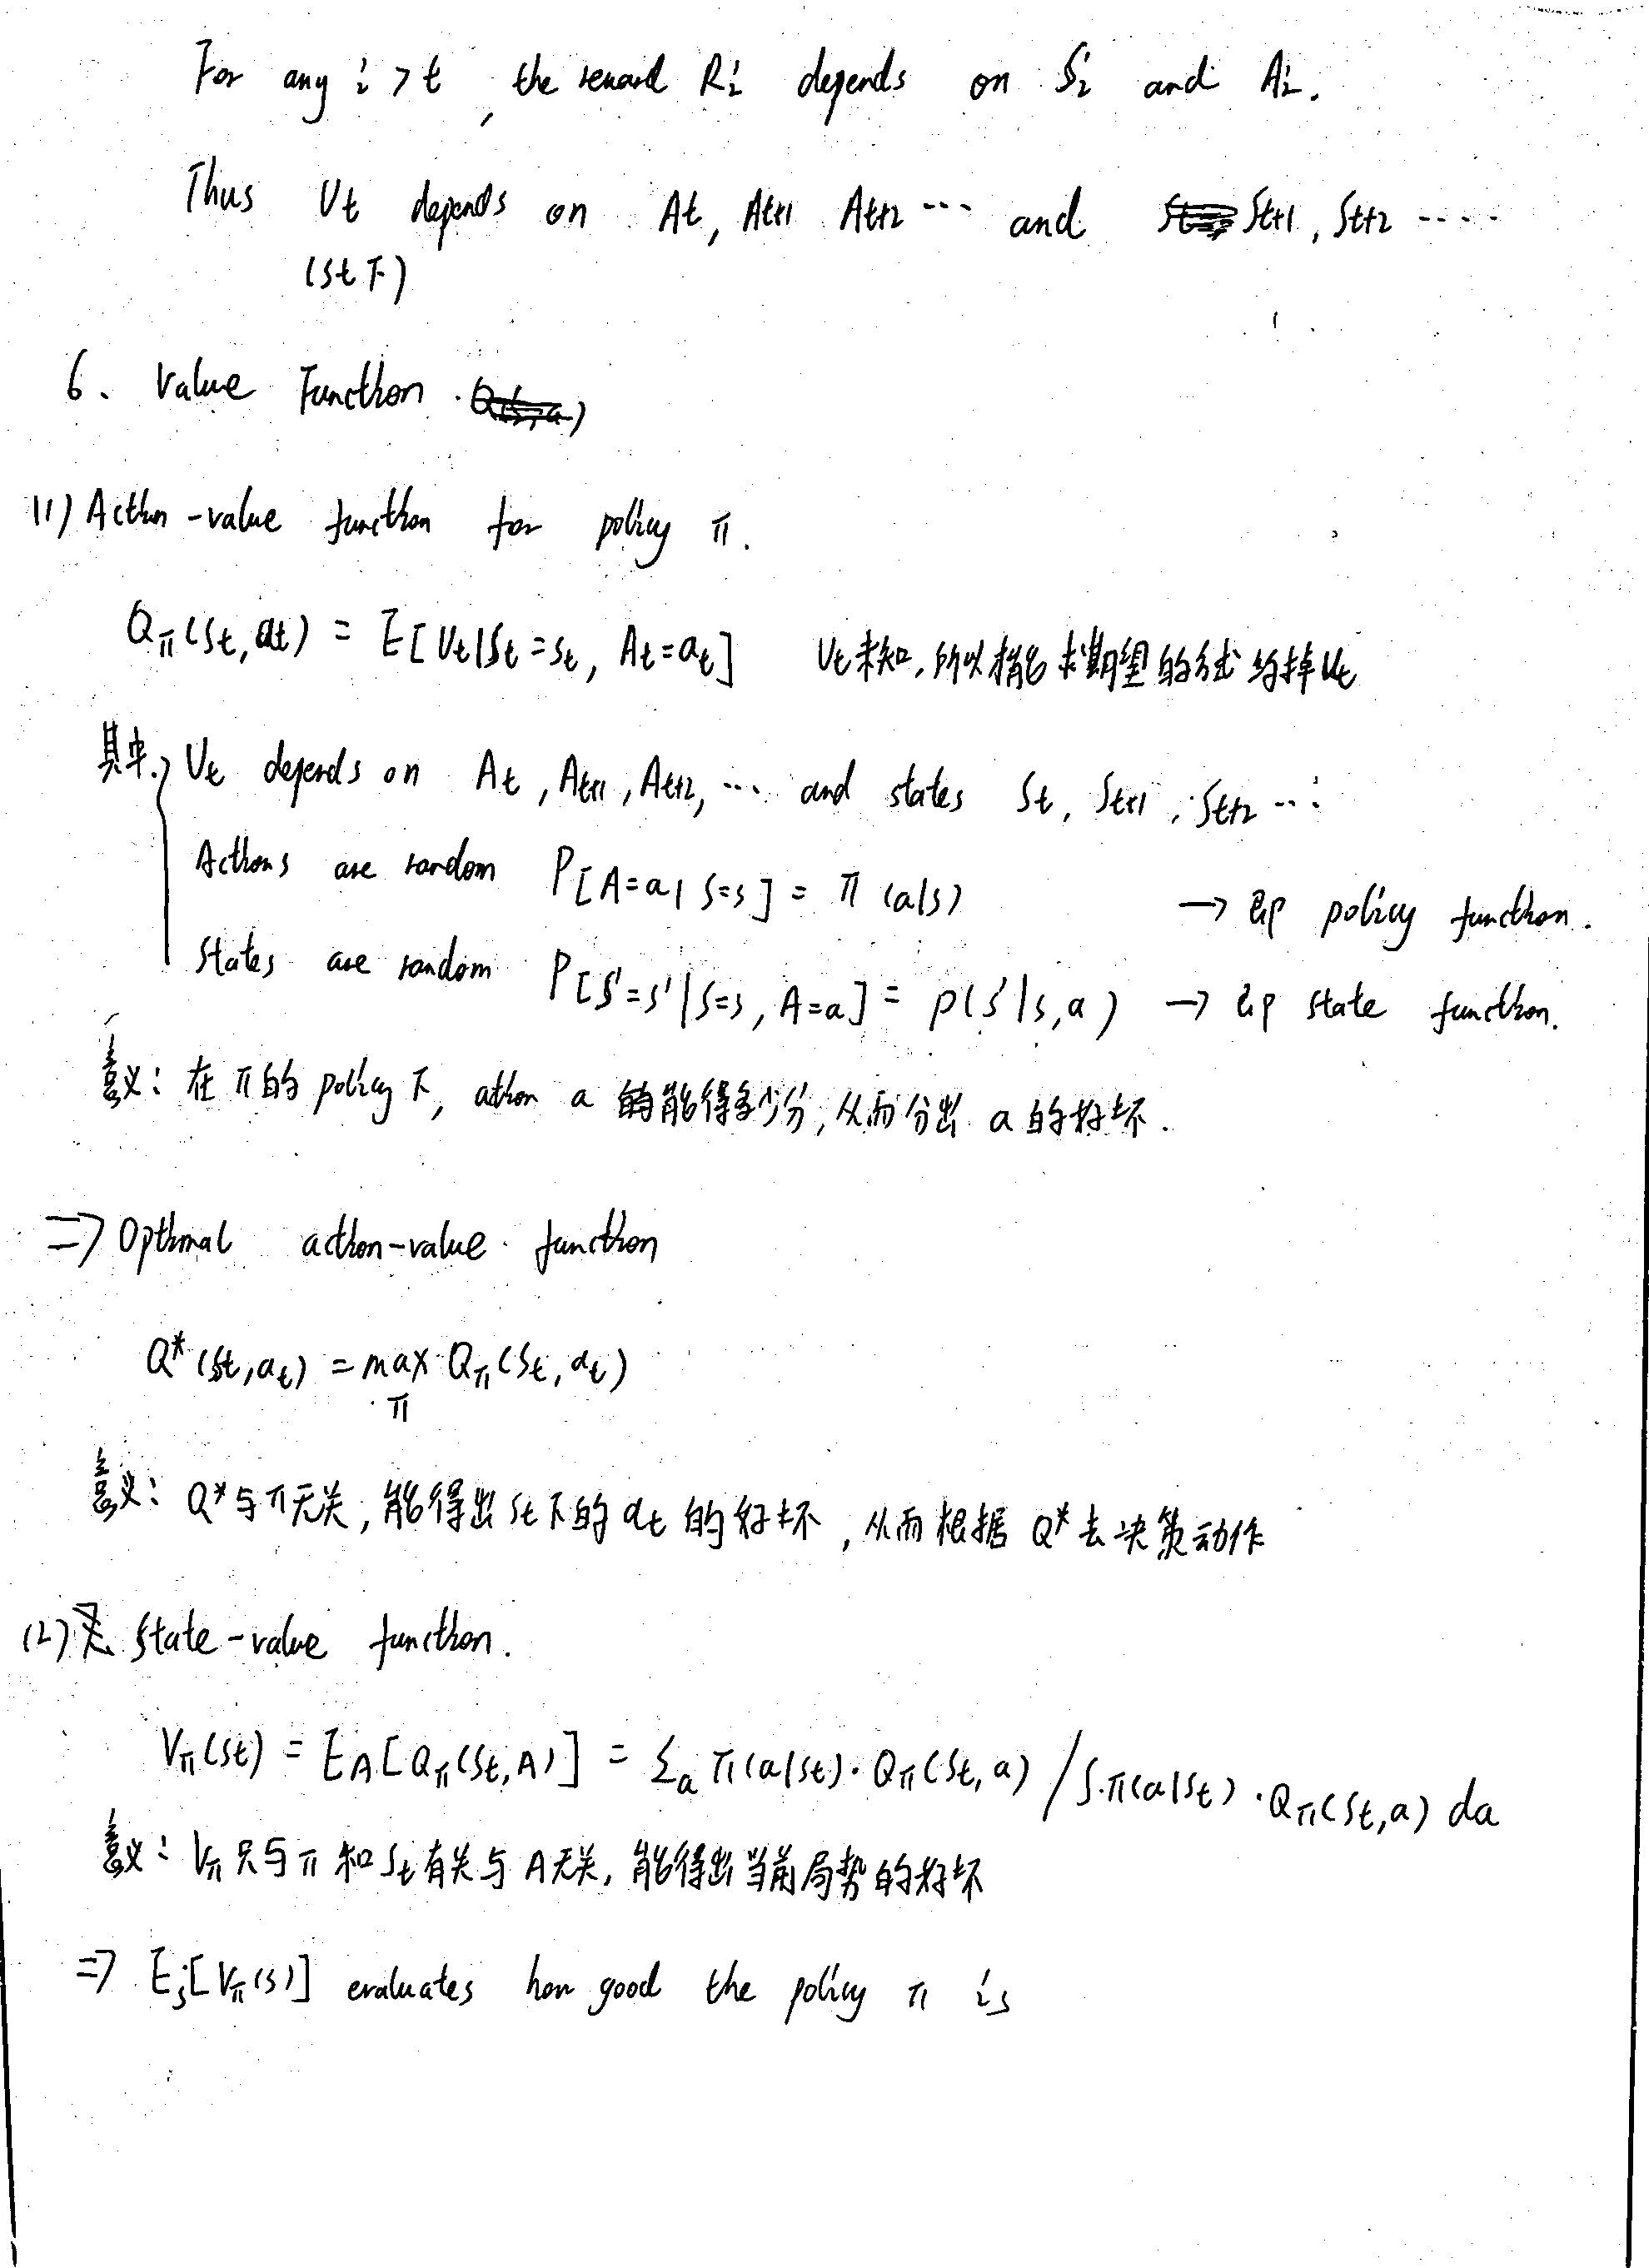 For any i > t, the reward Ri depends on Si and Ai.
Thus Ut depends on At, At+1 At+2 ··· and St+1, St+2 ····
(St下)
6. Value Function
(1) Action-value function for policy π.
Qπ(St, at) = E[Ut|St=st, At=at] Ut未知,所以 求期望的方式 约掉Ut
其中, Ut depends on At, At+1, At+2, ··· and states St, St+1, St+2 ···
Actions are random P[A=a| S=s] = π(a|s) → 即 policy function.
States are random P[S'=s'|S=s, A=a] = p(s'|s,a) → 即 state function.
意义: 在π的policy下, action a 能得多少分, 从而分出 a的好坏.
=> Optimal action-value function
Q*(st,at) = max Qπ(st, at)
π
意义: Q*与π无关, 能得出st下的at的好坏, 从而根据Q*去决策动作
(2) State-value function.
Vπ(st) = EA[Qπ(st, A)] = Σa π(a|st)·Qπ(st, a) / ∫π(a|st)·Qπ(st,a) da
意义: Vπ只与π和st有关与A无关, 能得出当前局势的好坏
=> Es[Vπ(s)] evaluates how good the policy π is